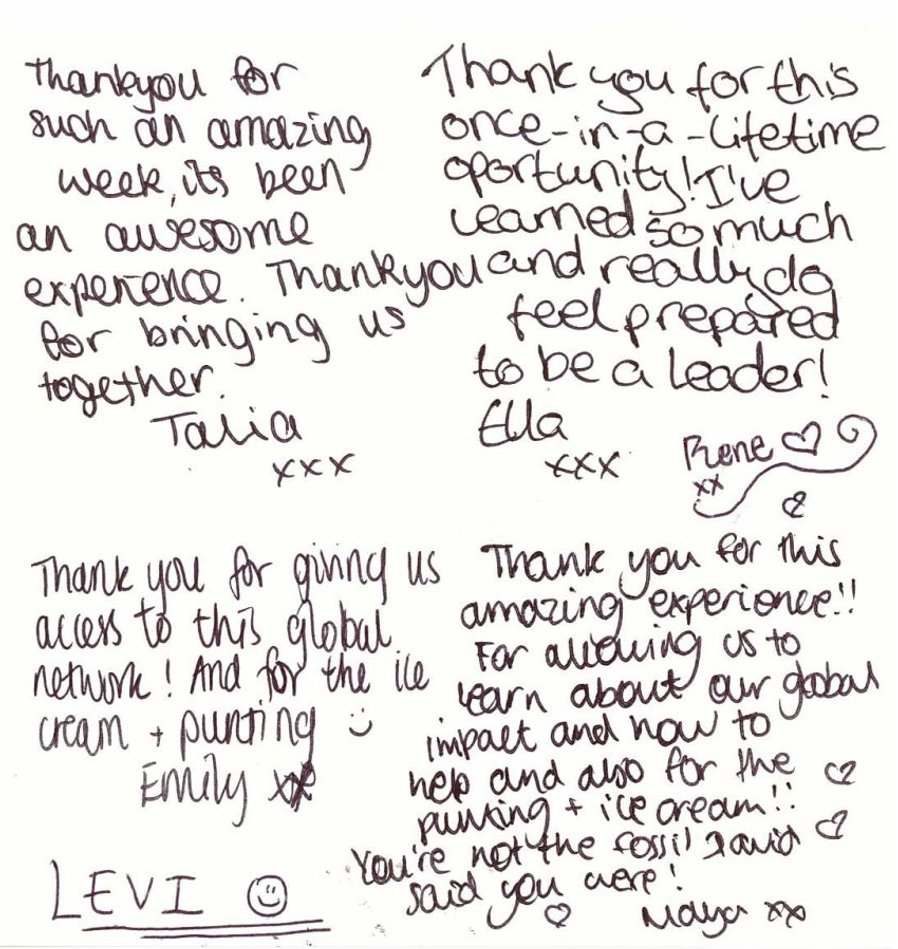 Thankyou for
such an amazing
week, its been
an awesome
experience. Thankyou
for bringing us
together.
Talia
xxx
Thank you for this
once-in-a-lifetime
oportunity! I've
learned so much
and really do
feel prepared
to be a leader!
Ella
xxx
Rene
xx
Thank you for giving us
access to this global
network! And for the ice
cream + punting :)
Emily xx
LEVI
Thank you for this
amazing experience!!
For allowing us to
learn about our global
impact and how to
help and also for the
punting + ice cream!!
You're not the fossil David
said you were!
Maya xx